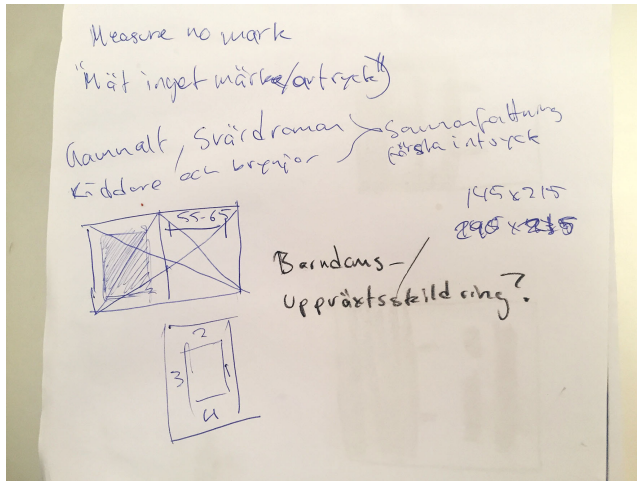 Measure no mark
"Mät inget märke/avtryck"
Gammalt, Svärdroman
Riddare och brynjor
Sammanfattning
första intryck
145x215
290x215
55-65
Barndoms-/
uppväxtsskildring?
2
3 1
4